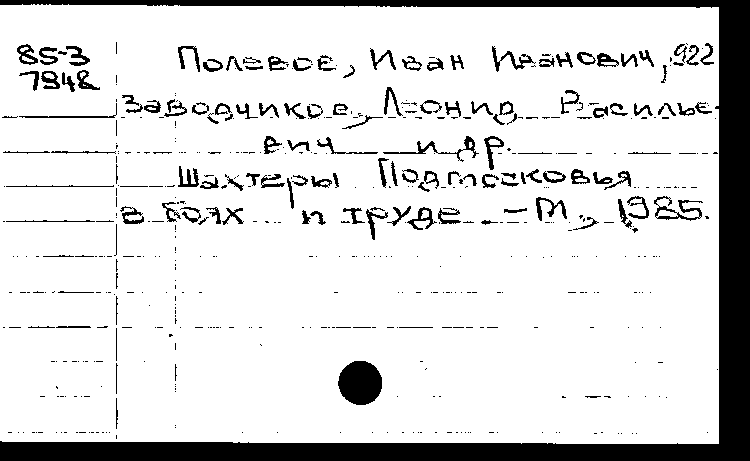 85-3
7948
Полевое, Иван Иванович, 922
Заводчиков, Леонид Василье-
вич и др.
Шахтеры Подмосковья
в боях и труде. - М., 1985.